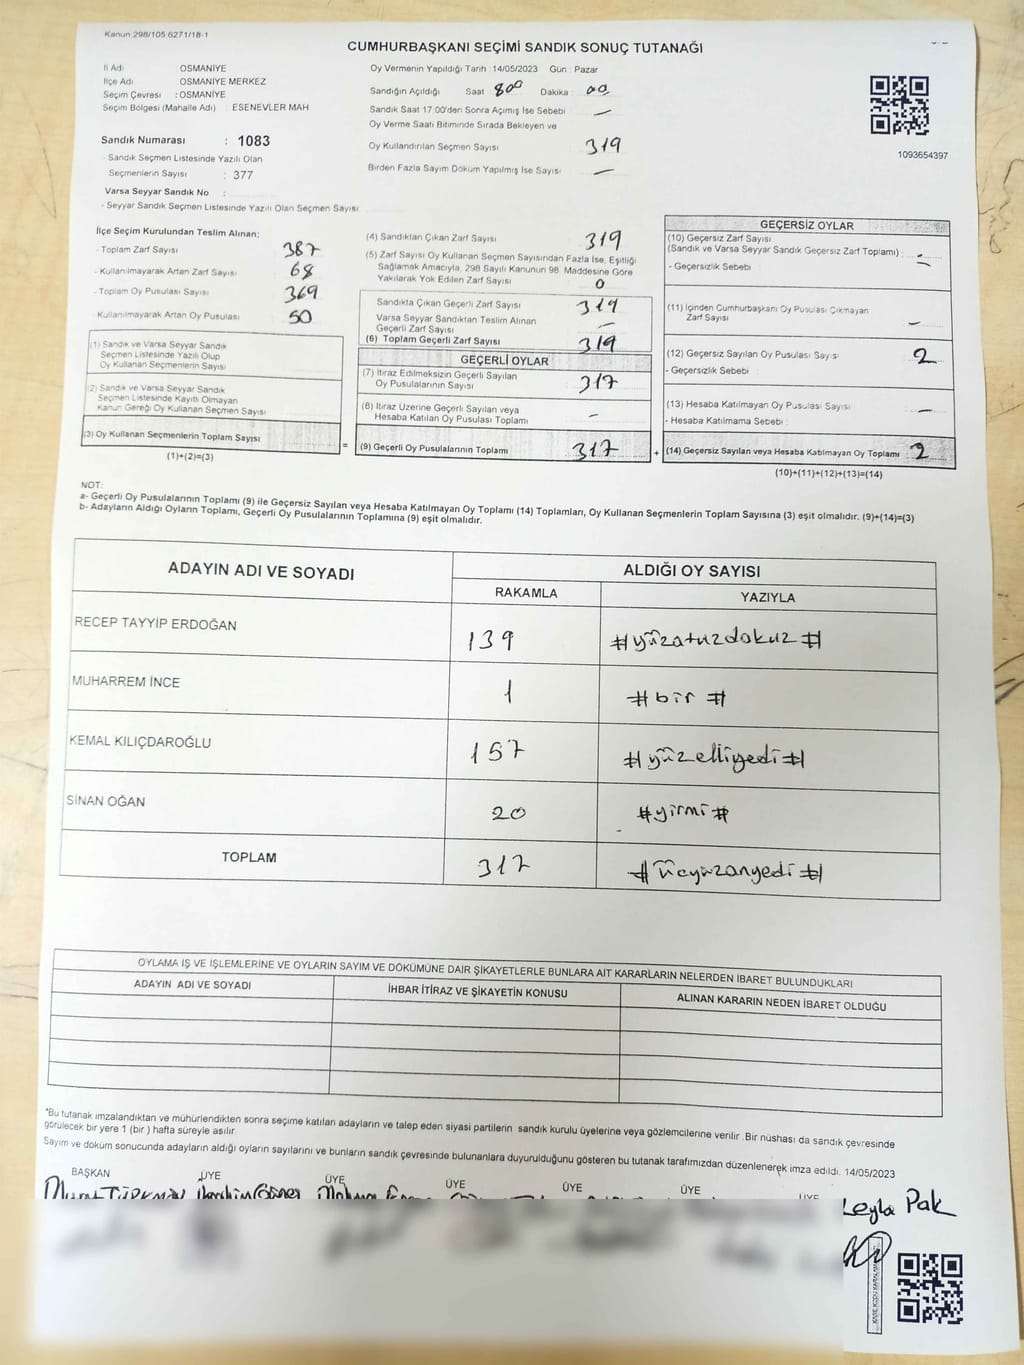 Kanun 298/105 6271/18-1
CUMHURBAŞKANI SEÇİMİ SANDIK SONUÇ TUTANAĞI
İl Adı OSMANİYE
İlçe Adı OSMANİYE MERKEZ
Seçim Çevresi : OSMANİYE
Seçim Bölgesi (Mahalle Adı) : ESENEVLER MAH.
Sandık Numarası : 1083
- Sandık Seçmen Listesinde Yazılı Olan
Seçmenlerin Sayısı : 377
Varsa Seyyar Sandık No :
- Seyyar Sandık Seçmen Listesinde Yazılı Olan Seçmen Sayısı
Oy Vermenin Yapıldığı Tarih : 14/05/2023 Gün : Pazar
Sandığın Açıldığı Saat 800 Dakika : 00
Sandık Saat 17:00'den Sonra Açımış İse Sebebi —
Oy Verme Saati Bitiminde Sırada Bekleyen ve
Oy Kullandırılan Seçmen Sayısı 319
Birden Fazla Sayım Döküm Yapılmış İse Sayısı —
1093654397
İlçe Seçim Kurulundan Teslim Alınan;
- Toplam Zarf Sayısı 387
- Kullanılmayarak Artan Zarf Sayısı 68
- Toplam Oy Pusulası Sayısı 369
- Kullanılmayarak Artan Oy Pusulası 50
(1) Sandık ve Varsa Seyyar Sandık
Seçmen Listesinde Yazılı Olup
Oy Kullanan Seçmenlerin Sayısı
(2) Sandık ve Varsa Seyyar Sandık
Seçmen Listesinde Kayıtlı Olmayan
Kanun Gereği Oy Kullanan Seçmen Sayısı
(3) Oy Kullanan Seçmenlerin Toplam Sayısı
(1)+(2)=(3)
=
(4) Sandıktan Çıkan Zarf Sayısı 319
(5) Zarf Sayısı Oy Kullanan Seçmen Sayısından Fazla İse, Eşitliği
Sağlamak Amacıyla, 298 Sayılı Kanunun 98. Maddesine Göre
Yakılarak Yok Edilen Zarf Sayısı 0
Sandıkta Çıkan Geçerli Zarf Sayısı 319
Varsa Seyyar Sandıktan Teslim Alınan
Geçerli Zarf Sayısı —
(6) Toplam Geçerli Zarf Sayısı 319
GEÇERLİ OYLAR
(7) İtiraz Edilmeksizin Geçerli Sayılan
Oy Pusulalarının Sayısı 317
(8) İtiraz Üzerine Geçerli Sayılan veya
Hesaba Katılan Oy Pusulası Toplamı —
(9) Geçerli Oy Pusulalarının Toplamı 317
+
GEÇERSİZ OYLAR
(10) Geçersiz Zarf Sayısı
(Sandık ve Varsa Seyyar Sandık Geçersiz Zarf Toplamı) : —
- Geçersizlik Sebebi —
(11) İçinden Cumhurbaşkanı Oy Pusulası Çıkmayan
Zarf Sayısı —
(12) Geçersiz Sayılan Oy Pusulası Sayısı 2
- Geçersizlik Sebebi :
(13) Hesaba Katılmayan Oy Pusulası Sayısı —
- Hesaba Katılmama Sebebi :
(14) Geçersiz Sayılan veya Hesaba Katılmayan Oy Toplamı 2
(10)+(11)+(12)+(13)=(14)
NOT:
a- Geçerli Oy Pusulalarının Toplamı (9) ile Geçersiz Sayılan veya Hesaba Katılmayan Oy Toplamı (14) Toplamları, Oy Kullanan Seçmenlerin Toplam Sayısına (3) eşit olmalıdır. (9)+(14)=(3)
b- Adayların Aldığı Oyların Toplamı, Geçerli Oy Pusulalarının Toplamına (9) eşit olmalıdır.
ADAYIN ADI VE SOYADI ALDIĞI OY SAYISI
RAKAMLA YAZIYLA
RECEP TAYYİP ERDOĞAN 139 #yüzotuzdokuz#
MUHARREM İNCE 1 #bir#
KEMAL KILIÇDAROĞLU 157 #yüzelliyedi#
SİNAN OĞAN 20 #yirmi#
TOPLAM 317 #üçyüzonyedi#
OYLAMA İŞ VE İŞLEMLERİNE VE OYLARIN SAYIM VE DÖKÜMÜNE DAİR ŞİKAYETLERLE BUNLARA AİT KARARLARIN NELERDEN İBARET BULUNDUKLARI
ADAYIN ADI VE SOYADI İHBAR İTİRAZ VE ŞİKAYETİN KONUSU ALINAN KARARIN NEDEN İBARET OLDUĞU
*Bu tutanak imzalandıktan ve mühürlendikten sonra seçime katılan adayların ve talep eden siyasi partilerin sandık kurulu üyelerine veya gözlemcilerine verilir .Bir nüshası da sandık çevresinde
görülecek bir yere 1 (bir ) hafta süreyle asılır.
Sayım ve döküm sonucunda adayların aldığı oyların sayılarını ve bunların sandık çevresinde bulunanlara duyurulduğunu gösteren bu tutanak tarafımızdan düzenlenerek imza edildi. 14/05/2023
BAŞKAN ÜYE ÜYE ÜYE ÜYE ÜYE ÜYE
Murat TÜRKMEN İbrahim Güneş
Leyla Pak